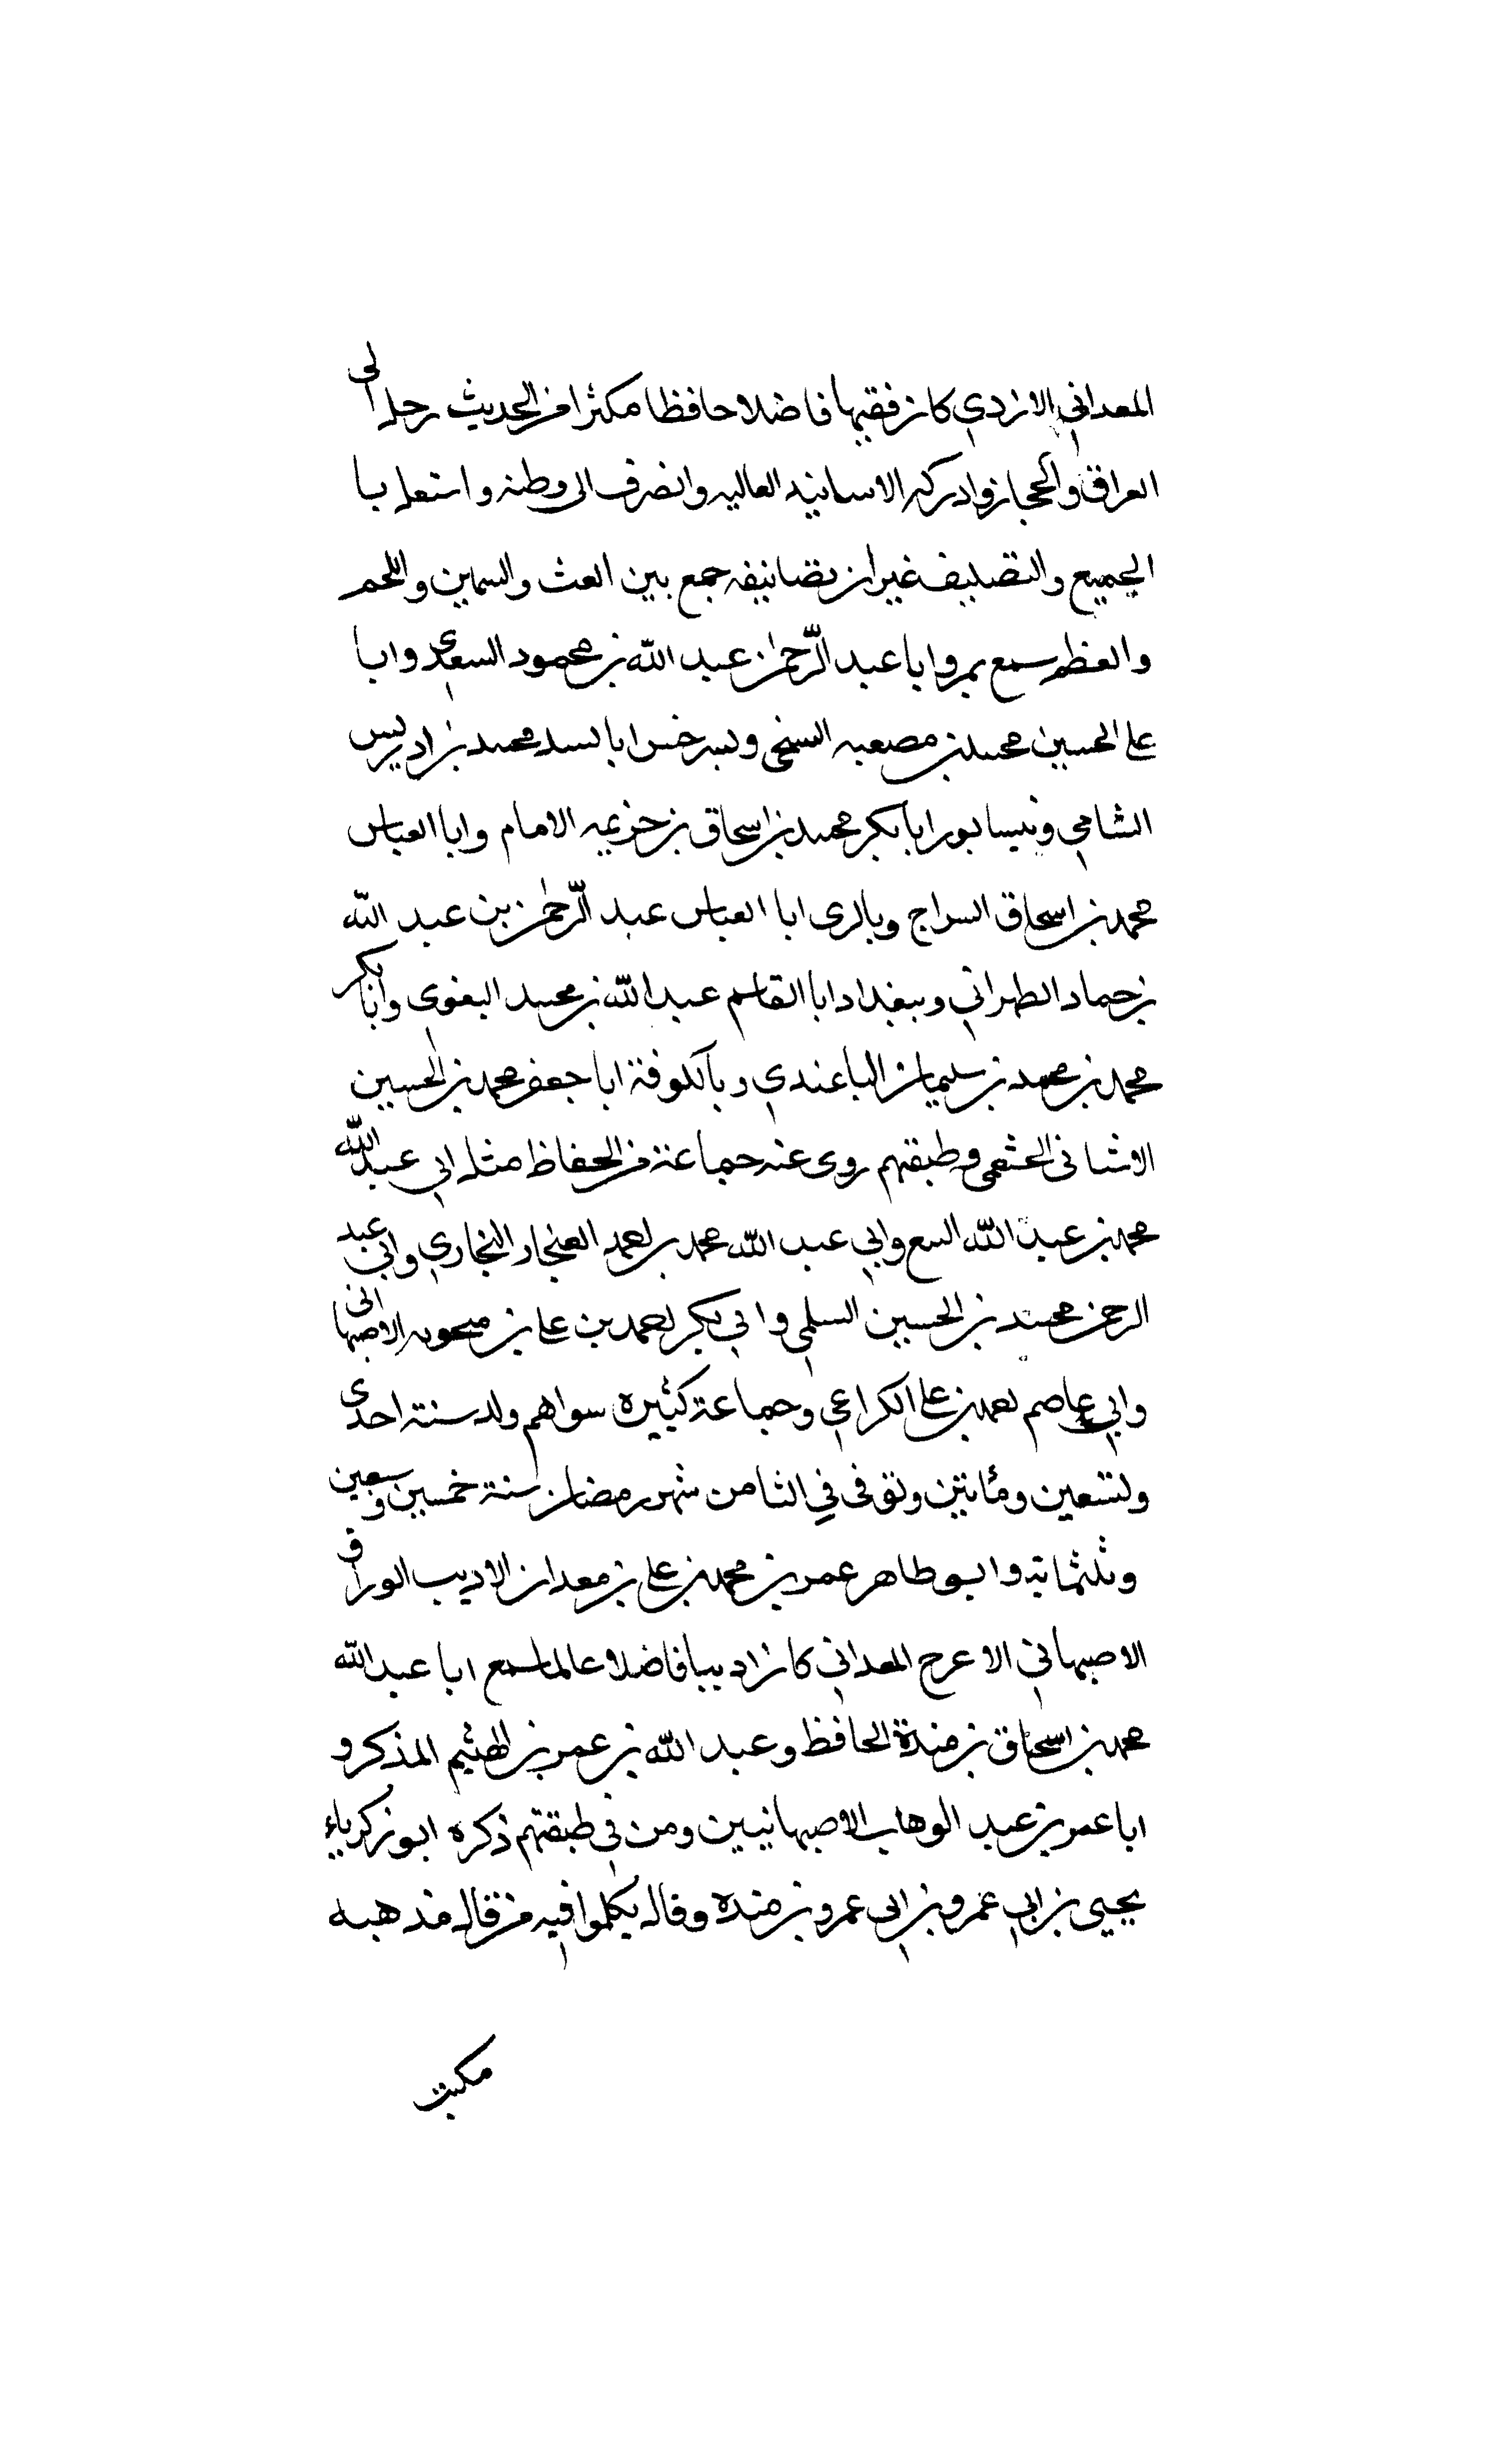 المعداني الازدي كان فقيها فاضلا حافظا مكثرا من الحديث رحل الى
العراق والحجاز وادرك الاسانيد العاليه وانصرف الى وطنه واشتعل با
الجميع والتصنيف غير ان تصانيفه جمع بين الغث والسمين واللحم
والعظم سمع بمرو ابا عبد الرحمن عبد الله بن محمود السعدي وابا
على الحسين محمد بن مصعب السنجى وبسرخس ابا لبيد محمد بن ادريس
الشامي وبنيسابور ابا بكر محمد بن اسحاق بن خزيمه الامام وابا العباس
محمد بن اسحاق السراج وبالرى ابا العباس عبد الرحمن بن عبد الله
بن حماد الطهراني وببغداد ابا القاسم عبد الله بن محمد البغوى وابا بكر
محمد بن محمد بن سليمان الباغندي وبالكوفة ابا جعفر محمد بن الحسين
الاشنانى الخثعمى وطبقتهم روى عنه جماعة من الحفاظ مثل ابي عبد الله
محمد بن عبد الله البيع وابي عبد الله محمد بن احمد الغنجار البخاري وابي عبد
الرحمن محمد بن الحسين السلمي وابي بكر احمد بن على بن منجويه الاصبهانى
وابي عاصم احمد بن على الكراعي وجماعة كثيره سواهم ولد سنة احدى
وتسعين ومائتين وتوفى في الثامن شهر رمضان سنة خمسين وسبعين
وثلثمائة وابو طاهر عمر بن محمد بن على بن معدان الاديب الوراق
الاصبهاني الاعرج المعداني كان اديبا فاضلا عالما سمع ابا عبد الله
محمد بن اسحاق بن مندة الحافظ وعبد الله بن عمر بن الهيثم المذكر و
ابا عمر بن عبد الوهاب الاصبهانيين ومن في طبقتهم ذكره ابو زكرياء
يحيى بن ابي عمرو بن ابي عمرو بن منده وقال تكلموا فيه من قال مذهبه